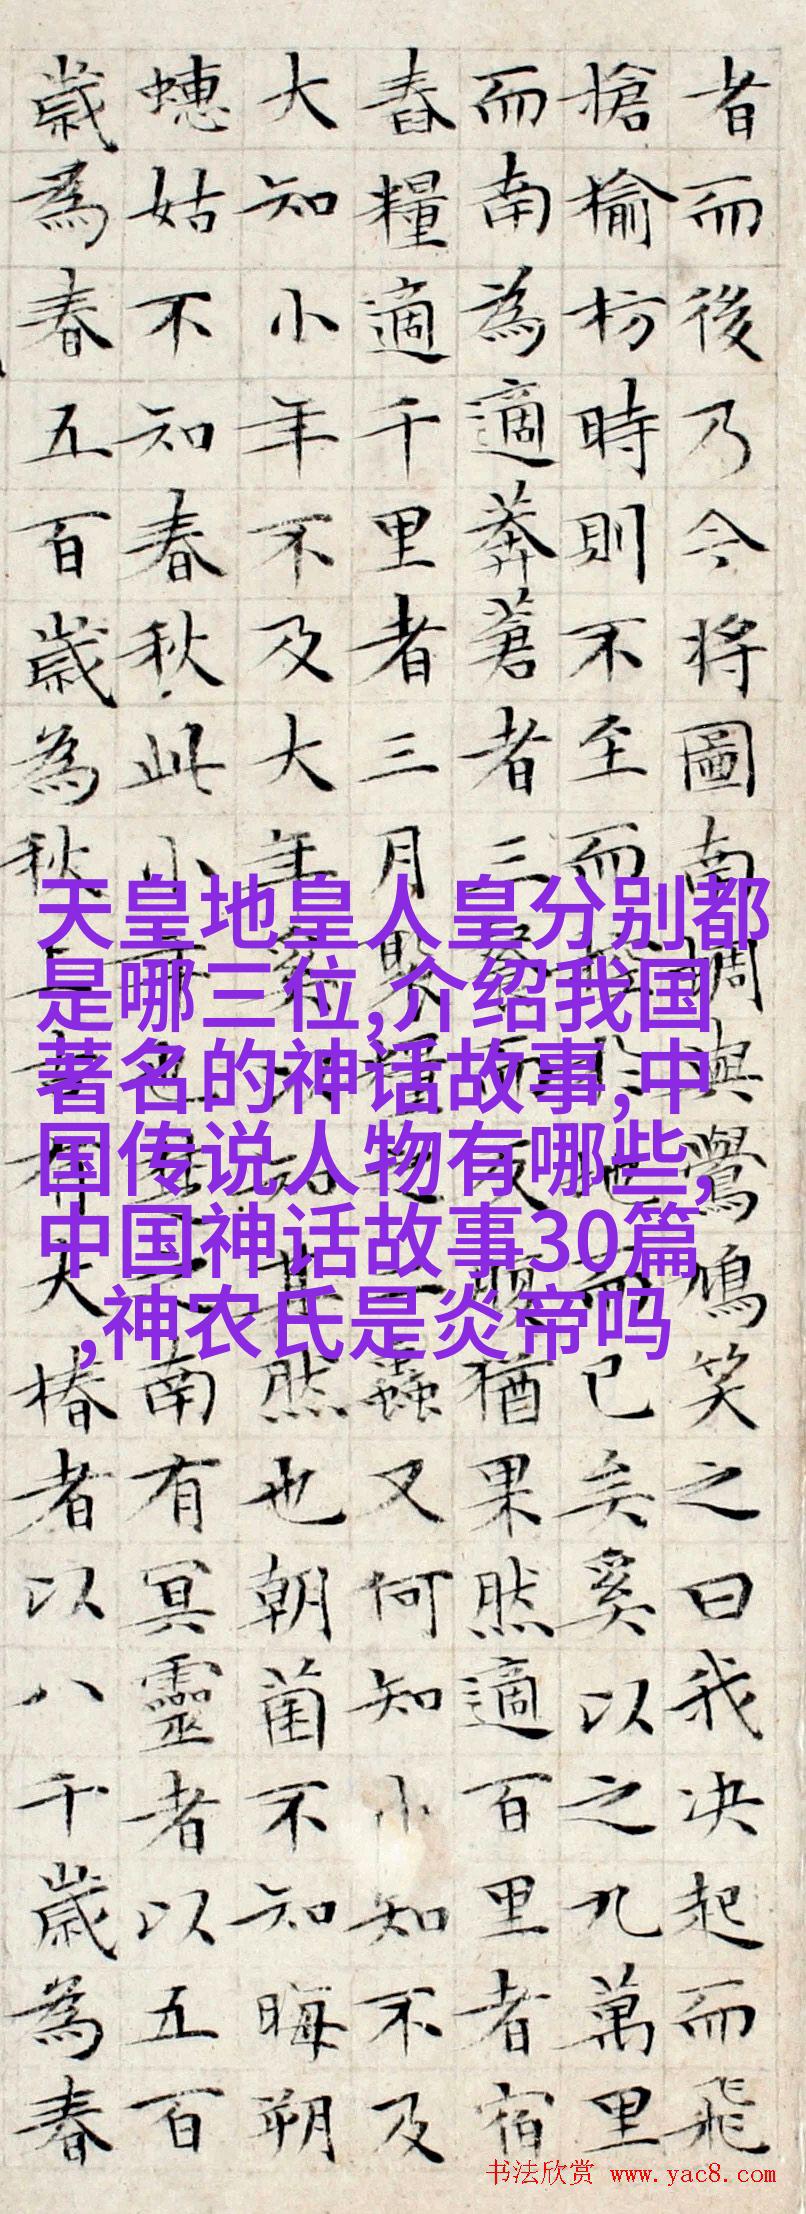 者而後乃今將圖南蜩與鷽鳩笑之曰我決起而飛
槍榆枋時則不至而控於地而已矣奚以之九萬里
而南為適莽蒼者三飡而反腹猶果然適百里者宿
舂糧適千里者三月聚糧之二蟲又何知小知不及
大知小年不及大年奚以知其然也朝菌不知晦朔
蟪姑不知春秋此小年也楚之南有冥靈者以五百
歲為春五百歲為秋上古有大椿者以八千歲為春
天皇地皇人皇分别都
是哪三位,介绍我国
著名的神话故事,中
国传说人物有哪些,
中国神话故事30篇
,神农氏是炎帝吗
书法欣赏 www.yac8.com